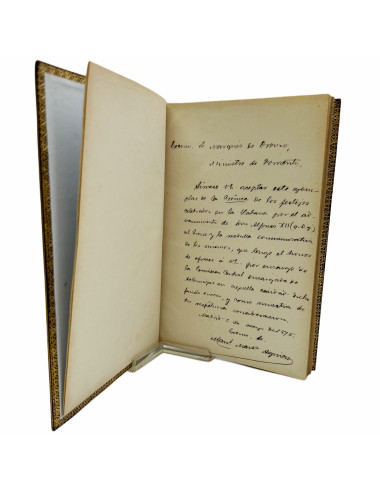 Excmo. Sr. Marqués de
Ministro de Fomento.
Sírvase V.E. aceptar este ejem-
plar de la Crónica de los festejos
celebrados en la Habana por el ad-
venimiento de Don Alfonso XII (q. D. g.)
al trono y la medalla conmemorativa
de los mismos, que tengo el honor
de ofrecer á V.E. por encargo de
la Comisión Central encargada de
en aquella
y como muestra de
su consideración.
Madrid 2 de mayo de 1875.